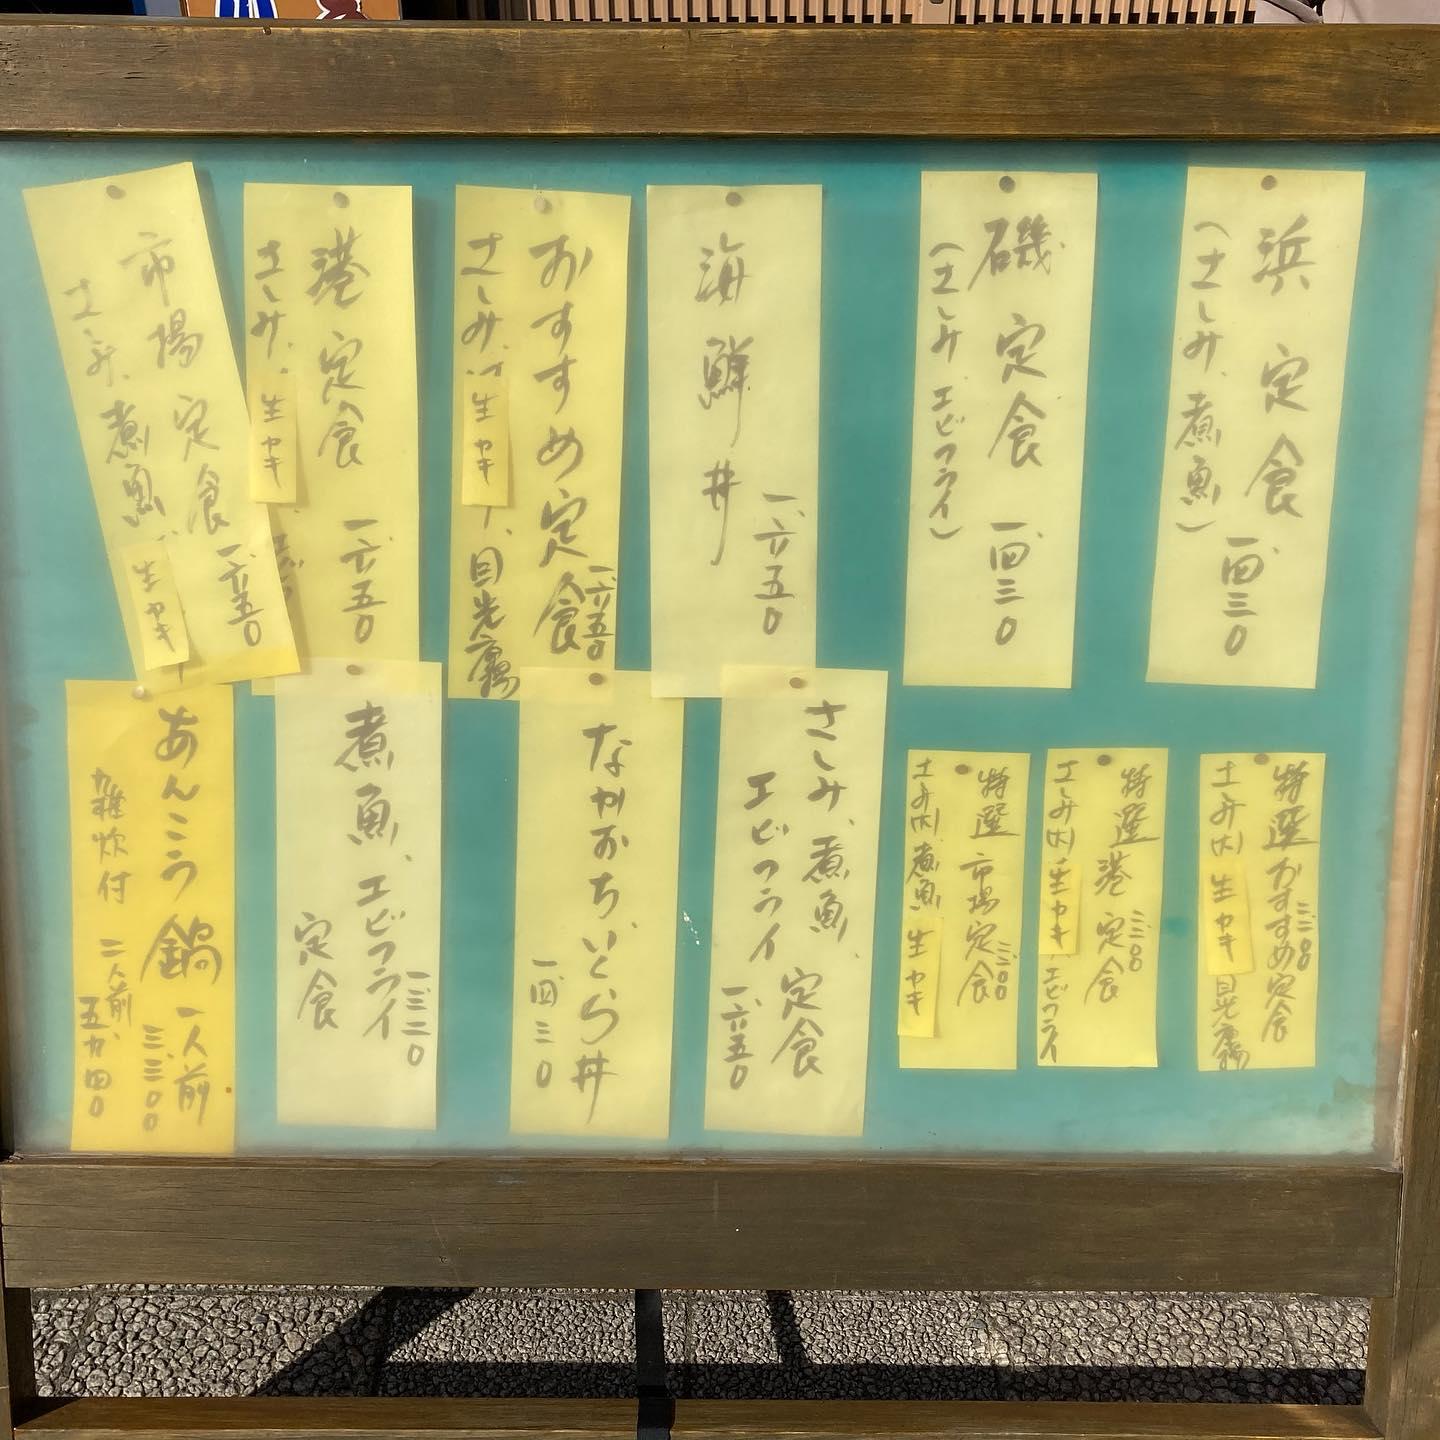 浜定食
一、四三〇
(さしみ、煮魚)
磯定食
一、四三〇
(さしみ エビフライ)
海鮮丼
一、六五〇
おすすめ定食
一、六五〇
さしみ、
生ヤキ
目光
港定食
一、六五〇
さしみ、
生ヤキ
市場定食
一、六五〇
さしみ、煮魚
生ヤキ
特選おすすめ定食
三三〇〇
さしみ(大)
生ヤキ
目光
特選港定食
三三〇〇
さしみ(大)
生ヤキ
エビフライ
特選市場定食
三三〇〇
さしみ(大)煮魚
生ヤキ
さしみ、煮魚、
エビフライ
定食
一、六五〇
なかおち、いくら丼
一、四三〇
煮魚、エビフライ
定食
一、三二〇
あんこう鍋 一人前
三、三〇〇
雑炊付 二人前